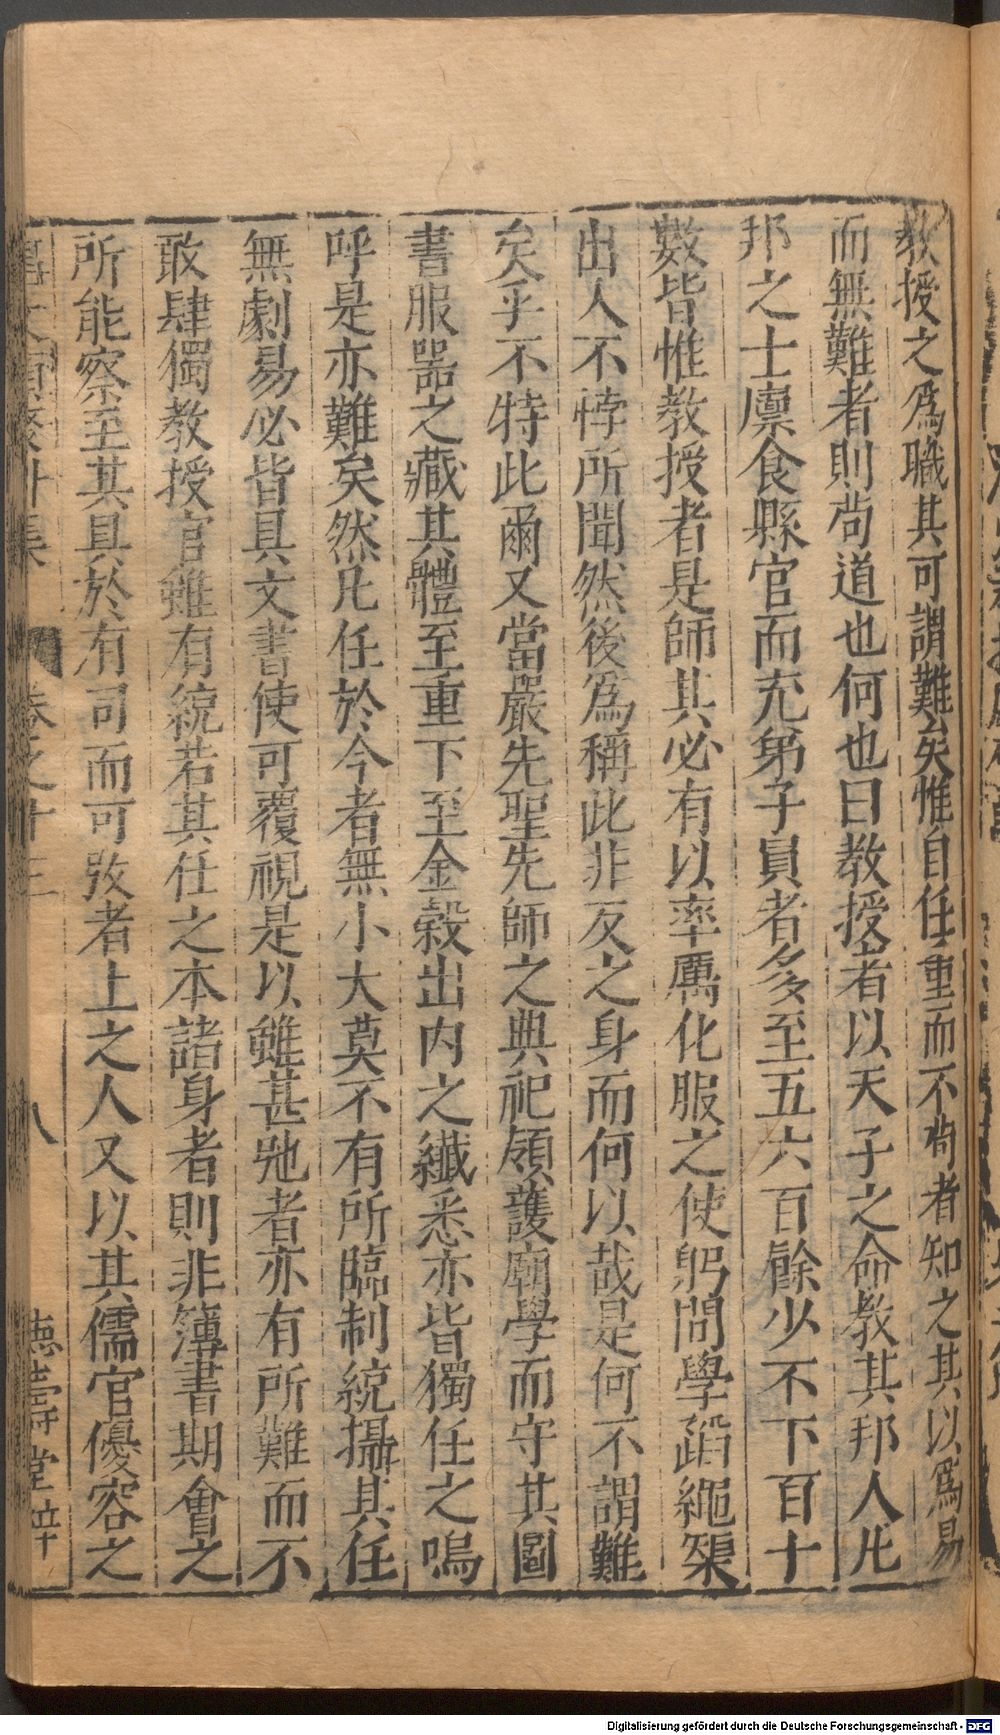 教授之爲職其可謂難矣惟自任重而不茍者知之其以爲易
而無難者則茍道也何也曰教授者以天子之命教其邦人凡
邦之士廪食縣官而充弟子員者多至五六百餘少不下百十
數皆惟教授者是師其必有以率厲化服之使躬問學蹈繩榘
出入不悖所聞然後爲稱此非反之身而何以哉是何不謂難
矣乎不特此爾又當嚴先聖先師之典祀領護廟學而守其圖
書服噐之藏其體至重下至金穀出内之纎悉亦皆獨任之嗚
呼是亦難矣然凡任於今者無小大莫不有所臨制統攝其任
無劇易必皆具文書使可覆視是以雖甚弛者亦有所難而不
敢肆獨教授官雖有統若其任之本諸身者則非簿書期會之
所能察至其具於有司而可攷者上之人又以其儒官優容之
卷之十三
八
德壽堂梓
Digitalisierung gefördert durch die Deutsche Forschungsgemeinschaft - DFG